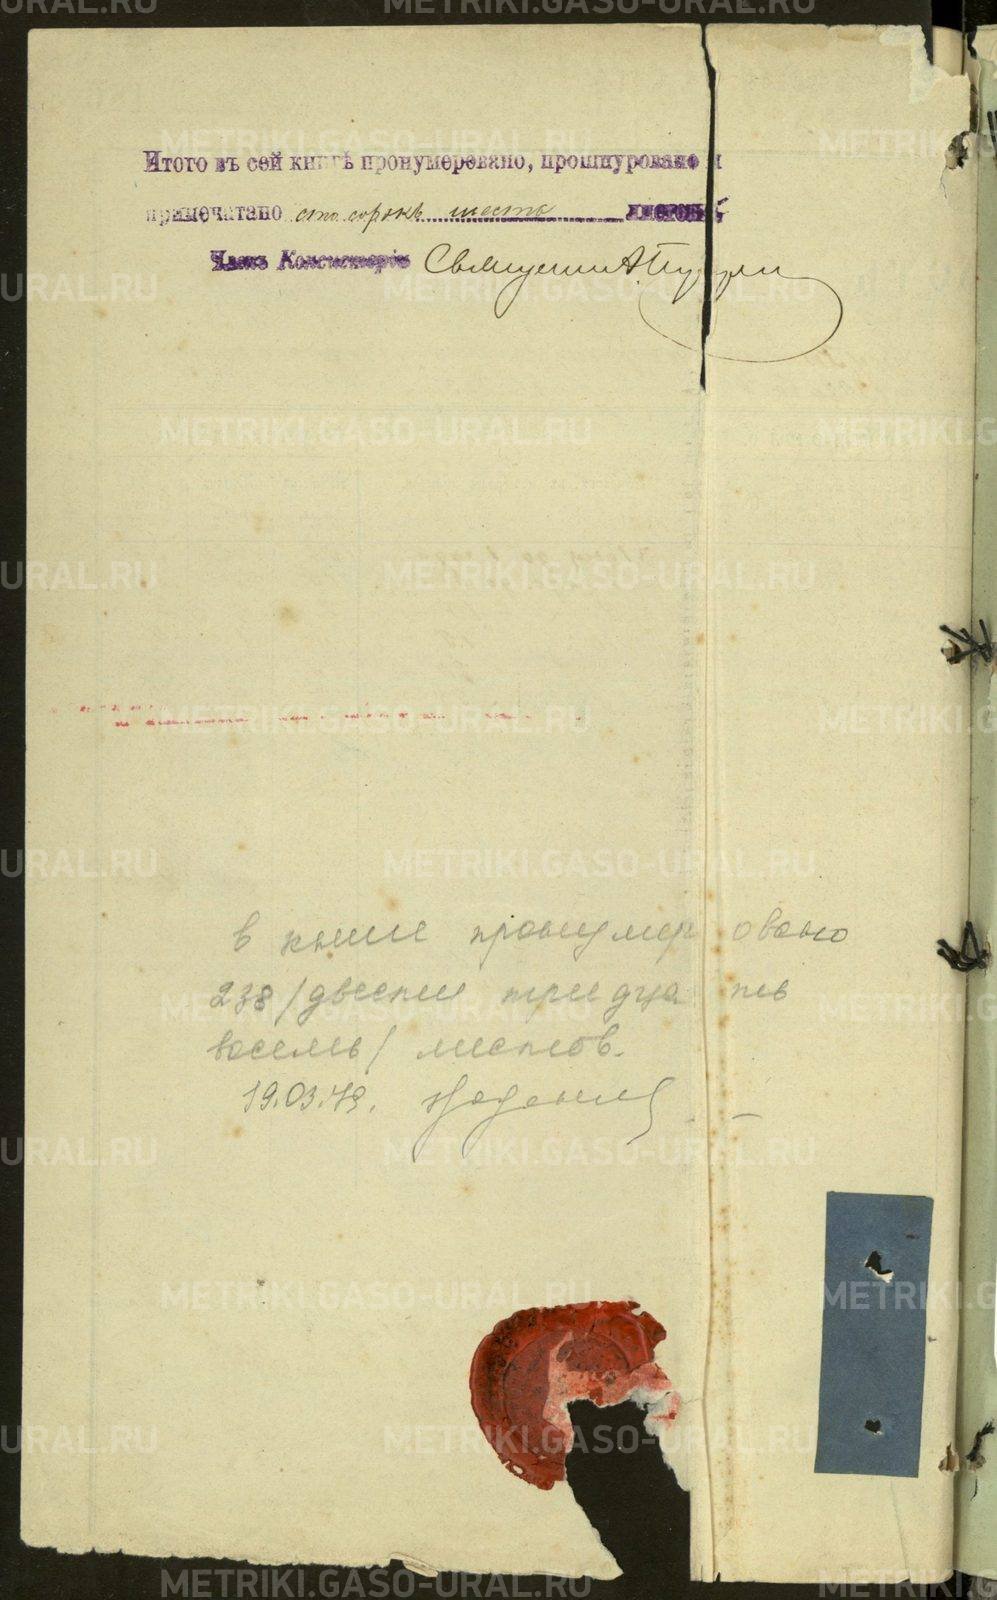 Итого въ сей книгѣ пронумеровано, прошнуровано и
припечатано сто сорокъ шесть листовъ
Членъ Консисторіи Священникъ А.
в книге пронумеровано
238 /двести тридцать
восемь/ листов.
19.03.79.
METRIKI.GASO-URAL.RU